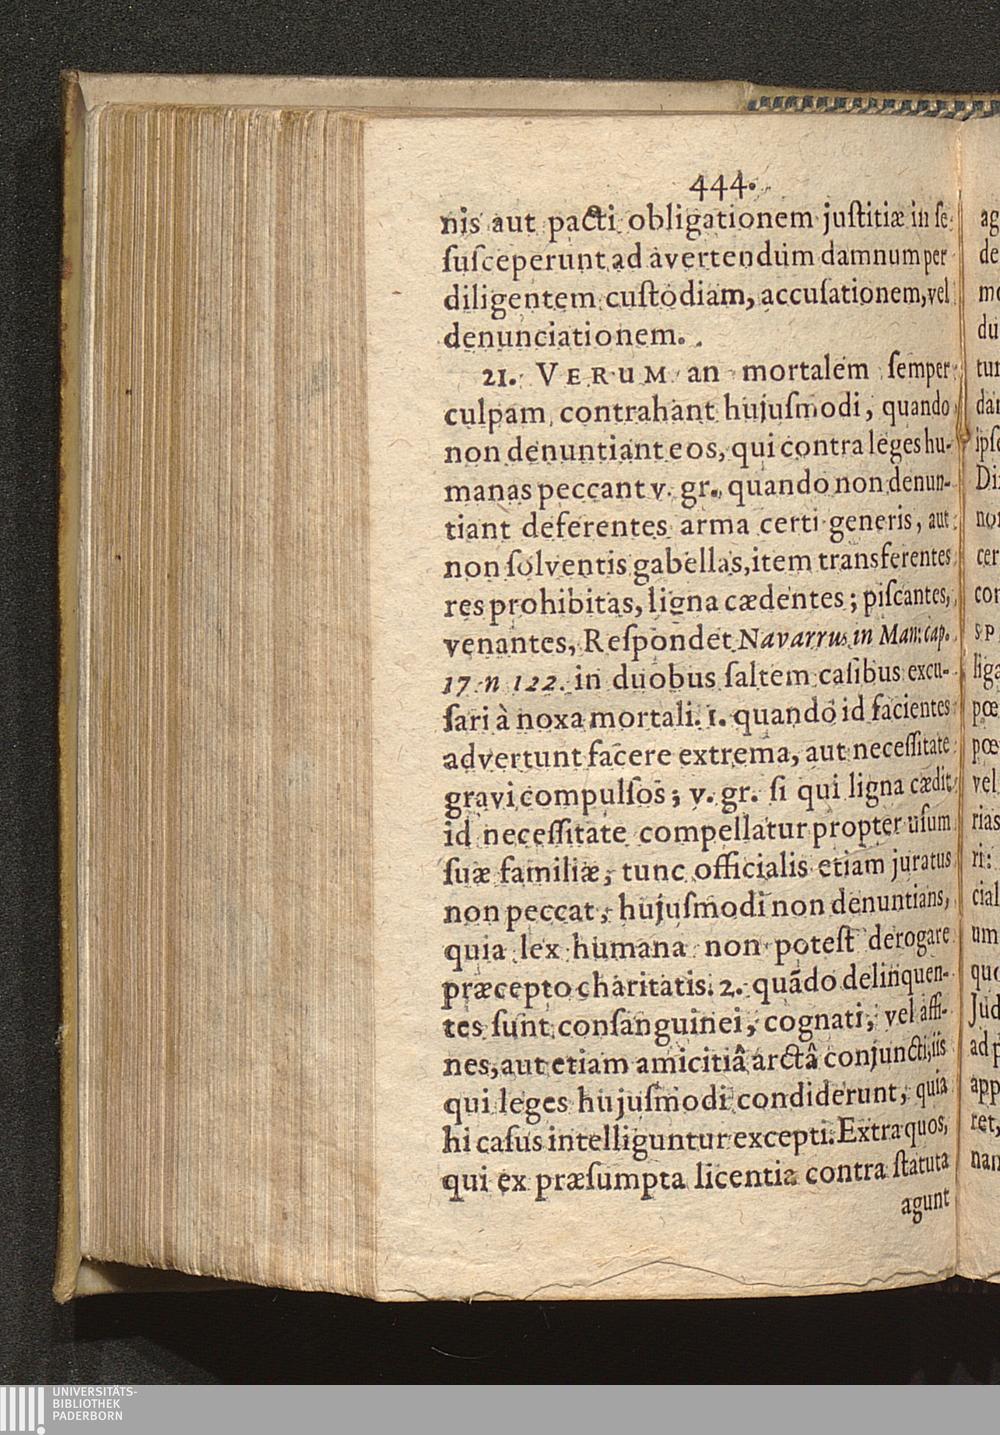 444.
nis aut pacti obligationem juſtitiæ in ſe
ſuſceperunt ad avertendum damnum per
diligentem cuſtodiam, accuſationem, vel
denunciationem.
21. VERUM an mortalem ſemper
culpam contrahant hujuſmodi, quando
non denuntiant eos, qui contra leges hu-
manas peccant v. gr., quando non denun-
tiant deferentes arma certi generis, aut
non ſolventis gabellas, item transferentes
res prohibitas, ligna cædentes; piſcantes,
venantes, Reſpondet Navarrus in Man: cap.
17 n 122. in duobus ſaltem caſibus excu-
ſari à noxa mortali. 1. quando id facientes
advertunt facere extrema, aut neceſſitate
gravi compulſos; v. gr. ſi qui ligna cædit
id neceſſitate compellatur propter uſum
ſuæ familiæ, tunc officialis etiam juratus
non peccat, hujuſmodi non denuntians,
quia lex humana non poteſt derogare
præcepto charitatis. 2. quãdo delinquen-
tes ſunt conſanguinei, cognati, vel affi-
nes, aut etiam amicitiâ arctâ conjuncti, iis
qui leges hujuſmodi condiderunt, quia
hi caſus intelliguntur excepti. Extra quos,
qui ex præſumpta licentia contra ſtatuta
agunt
ag
de
mo
du
tur
dan
ipſe
Di
non
cer
con
SP
liga
pœ
pœ
vel
rias
ri:
cial
um
quo
Jud
ad p
app
ret,
nam
UNIVERSITÄTS-
BIBLIOTHEK
PADERBORN